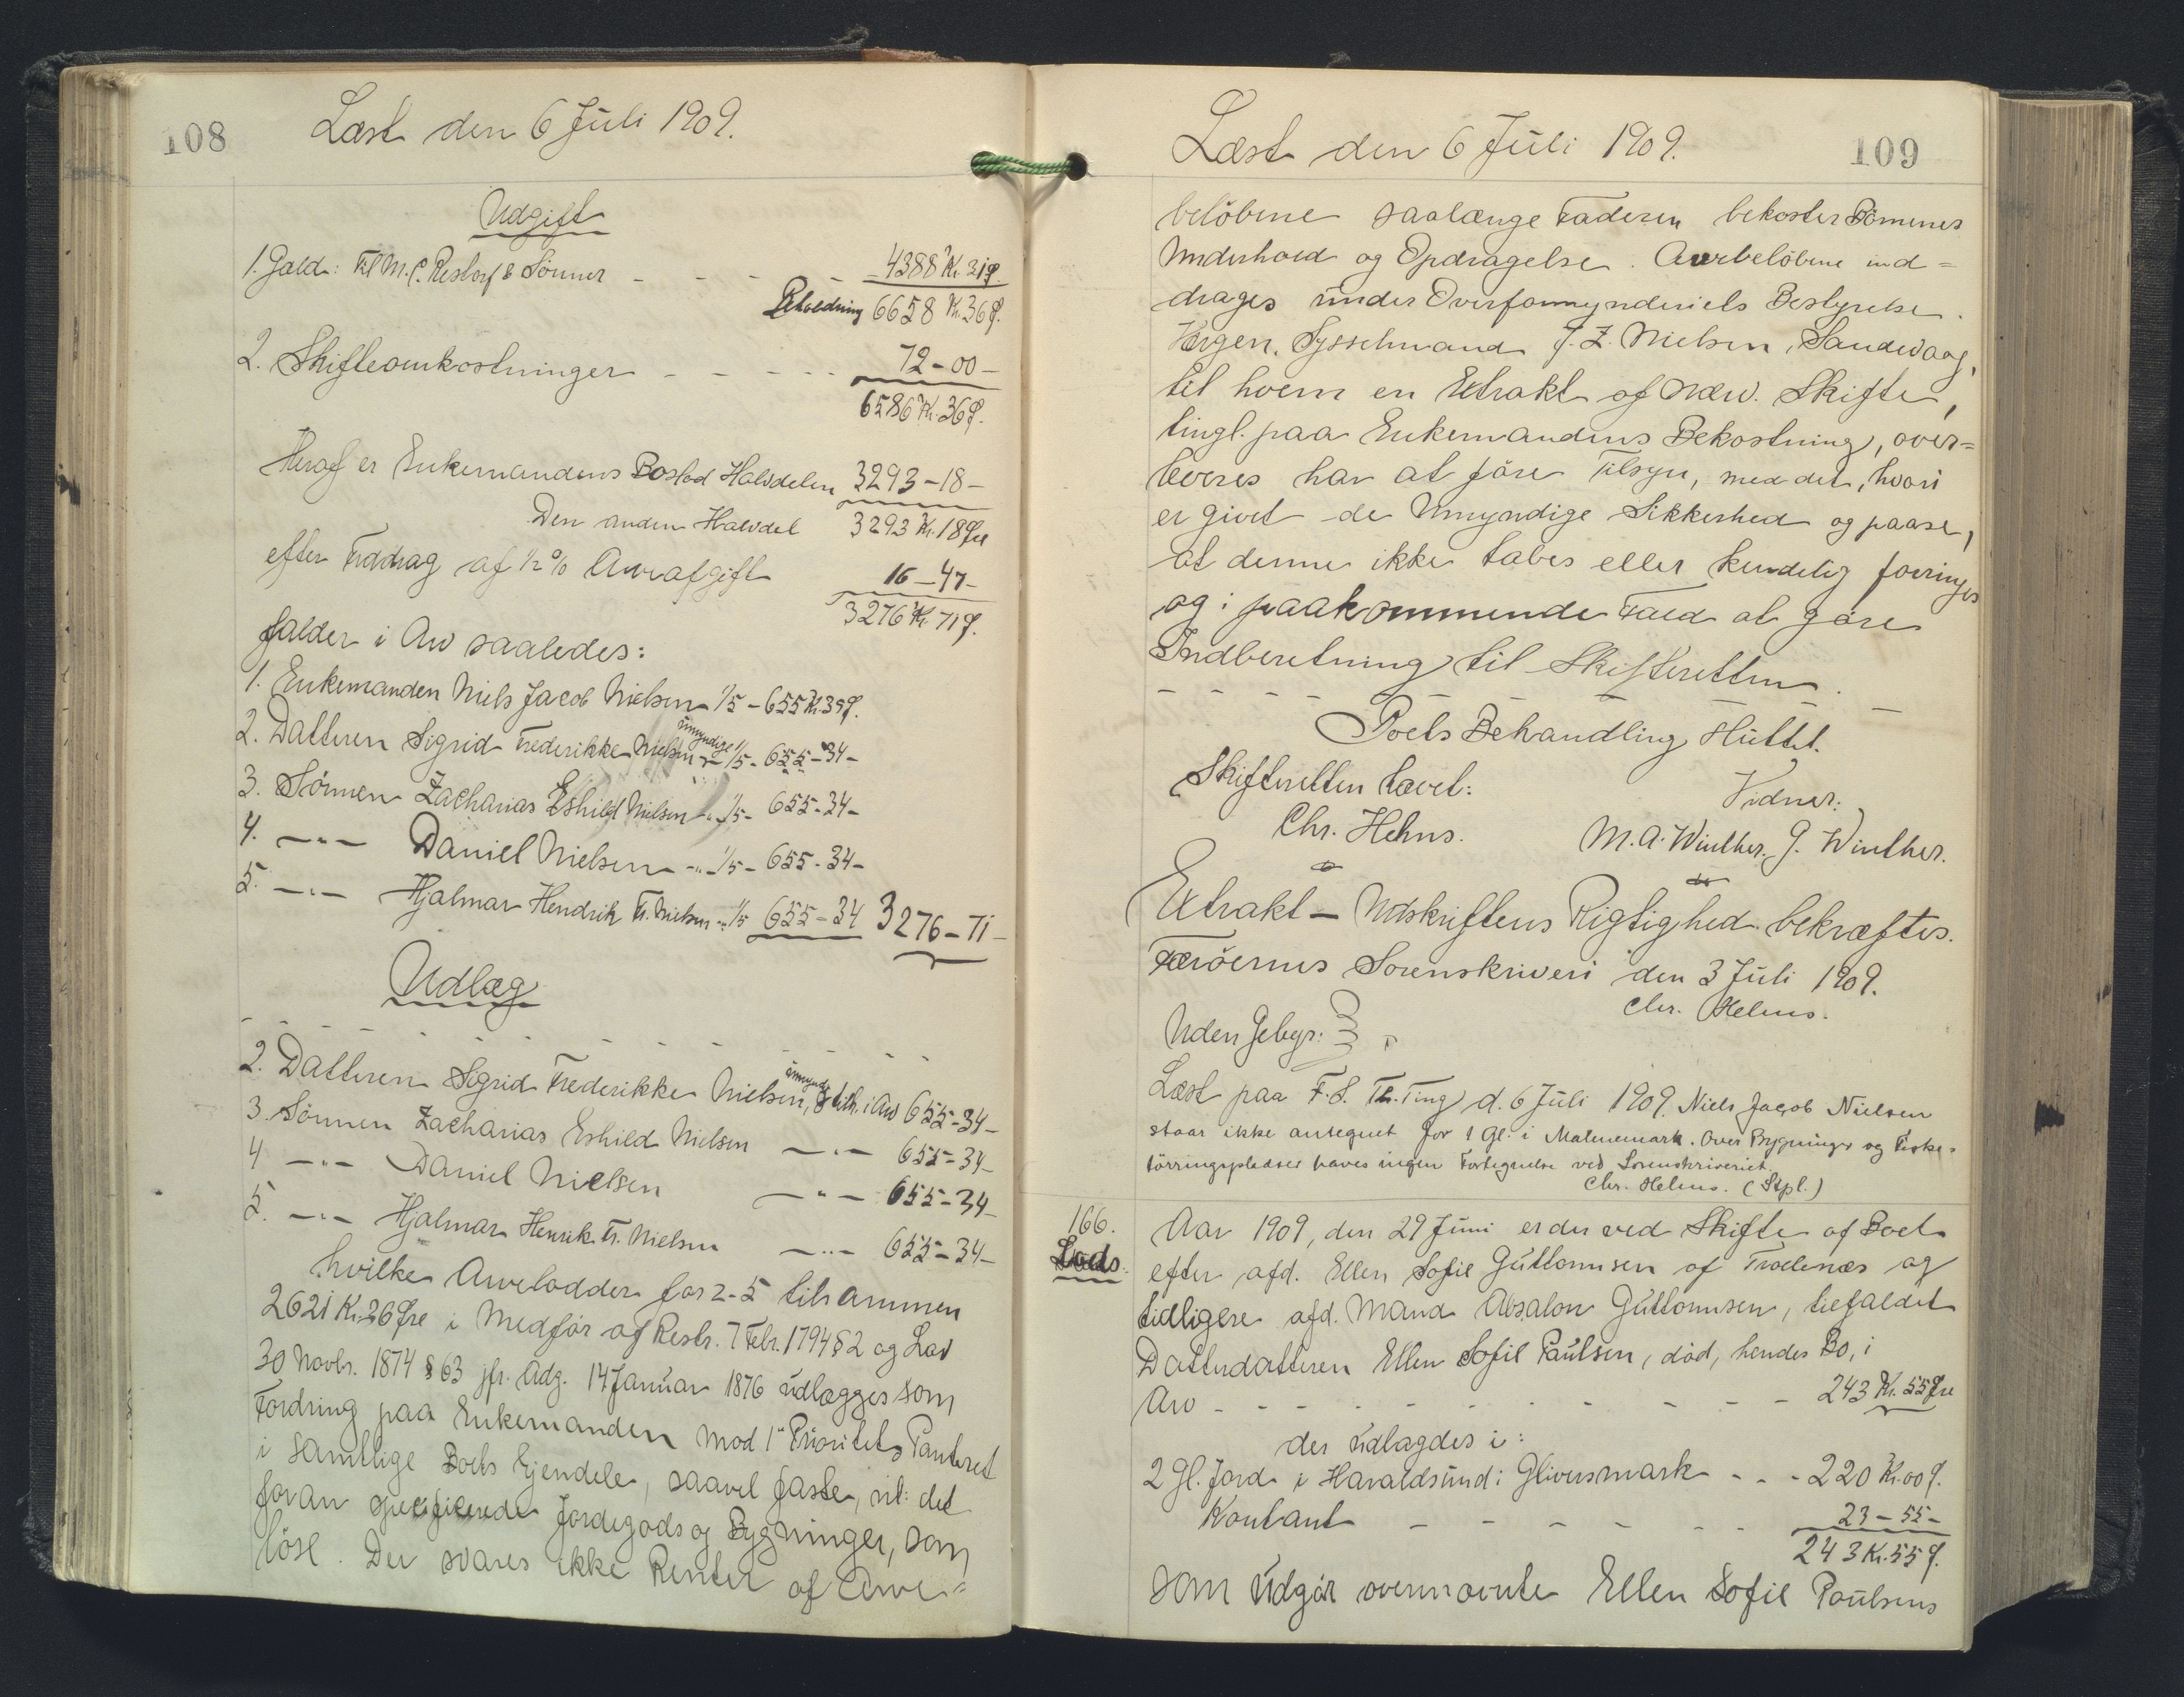 108
Læst den 6 Juli 1909.
Udgift
1. Gæld: Til M. C. Restorf & Sønner - - - - - 4388 Kr. 31 Ø.
Beholdning 6658 Kr. 36 Ø.
2. Skifteomkostninger - - - - - 72-00-
6586 Kr. 36 Ø.
Heraf er Enkemandens Boslod Halvdelen 3293-18-
Den anden Halvdel 3293 Kr. 18 Øre
efter Fradrag af 1/2 % Arveafgift 16-47-
3276 Kr. 71 Ø.
falder i Arv saaledes:
1. Enkemanden Niels Jacob Nielsen 1/5 - 655 Kr. 35 Ø.
2. Datteren Sigrid Frederikke Nielsen umyndige 1/5 - 655-34-
3. Sönnen Zacharias Eshild Nielsen -"- 1/5 - 655-34-
4. -"- Daniel Nielsen -"- 1/5 - 655-34-
5. -"- Hjalmar Hendrik Fr. Nielsen -"- 1/5 655-34 3276-71-
Udlæg
- - - - - - - - - - - -
2. Datteren Sigrid Frederikke Nielsen, umynd. tilk. i Arv 655-34-
3. Sönnen Zacharias Eshild Nielsen -"- 655-34-
4 -"- Daniel Nielsen -"- 655-34-
5. -"- Hjalmar Henrik Fr. Nielsen -"- 655-34-
hvilke Arvelodder for 2-5 tilsammen
2621 Kr. 36 Øre i Medfør af Reskr. 7 Febr. 1794 § 2 og Lov
30 Novbr. 1874 § 63 jfr. Adg. 14 Januar 1876 udlægges som
Fordring paa Enkemanden mod 1ste Prioritets Panteret
i samtlige Boets Ejendele, saavel faste, nl: det
foran specificerede Jordegods og Bygninger, som
löse. Der svares ikke Renter af Arve-
Læst den 6 Juli 1909.
109
belöbene saalænge Faderen bekoster Börnenes
Underhold og Opdragelse. Arvebelöbene ind=
drages under Overformynderiets Bestyrelse.
Værgen, Sysselmand J. Z. Nielsen, Sandevaag,
til hvem en Extrakt af nærv. Skifte,
tingl. paa Enkemandens Bekostning, over=
leveres har at före Tilsyn, med det, hvori
er givet de Umyndige Sikkerhed og paase,
at denne ikke tabes eller kendelig foringes
og i paakommende Fald at göre
Indberetning til Skifteretten.
- - - - - - - -
Boets Behandling sluttet.
Skifteretten hævet:
Vidner:
Chr. Helms.
M. A. Winther. J. Winther.
Extrakt - Udskriftens Rigtighed bekræftes.
Færöernes Sorenskriveri den 3 Juli 1909.
Chr. Helms.
Uden Gebyr:
Læst paa F. S. Th. Ting d. 6 Juli 1909. Niels Jacob Nielsen
staar ikke antegnet for 1 Gl. i Malenemark. Over Bygninger og Fiske=
törringspladser haves ingen Fortegnelse ved Sorenskriveriet.
Chr. Helms. (Stpl.)
166.
Lods.
Aar 1909, den 29 Juni er der ved Skifte af Boet
efter afd. Ellen Sofie Guttormsen af Trælenæs og
tidligere afd. Mand Absalon Guttormsen, tilfaldet
Datterdatteren Ellen Sofie Paulsen, död, hendes Bo, i
Arv - - - - - - - - - - 243 Kr. 55 Øre
der udlagdes i:
2 Gl. Jord i Haraldsund i Gliversmark - - - 220 Kr. 00 Ø.
Kontant - - - - - - 23-55-
243 Kr. 55 Ø.
som udgör ovennævnte Ellen Sofie Paulsens